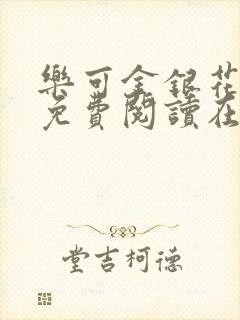 樂可金銀花
免費閱讀在
堂吉柯德